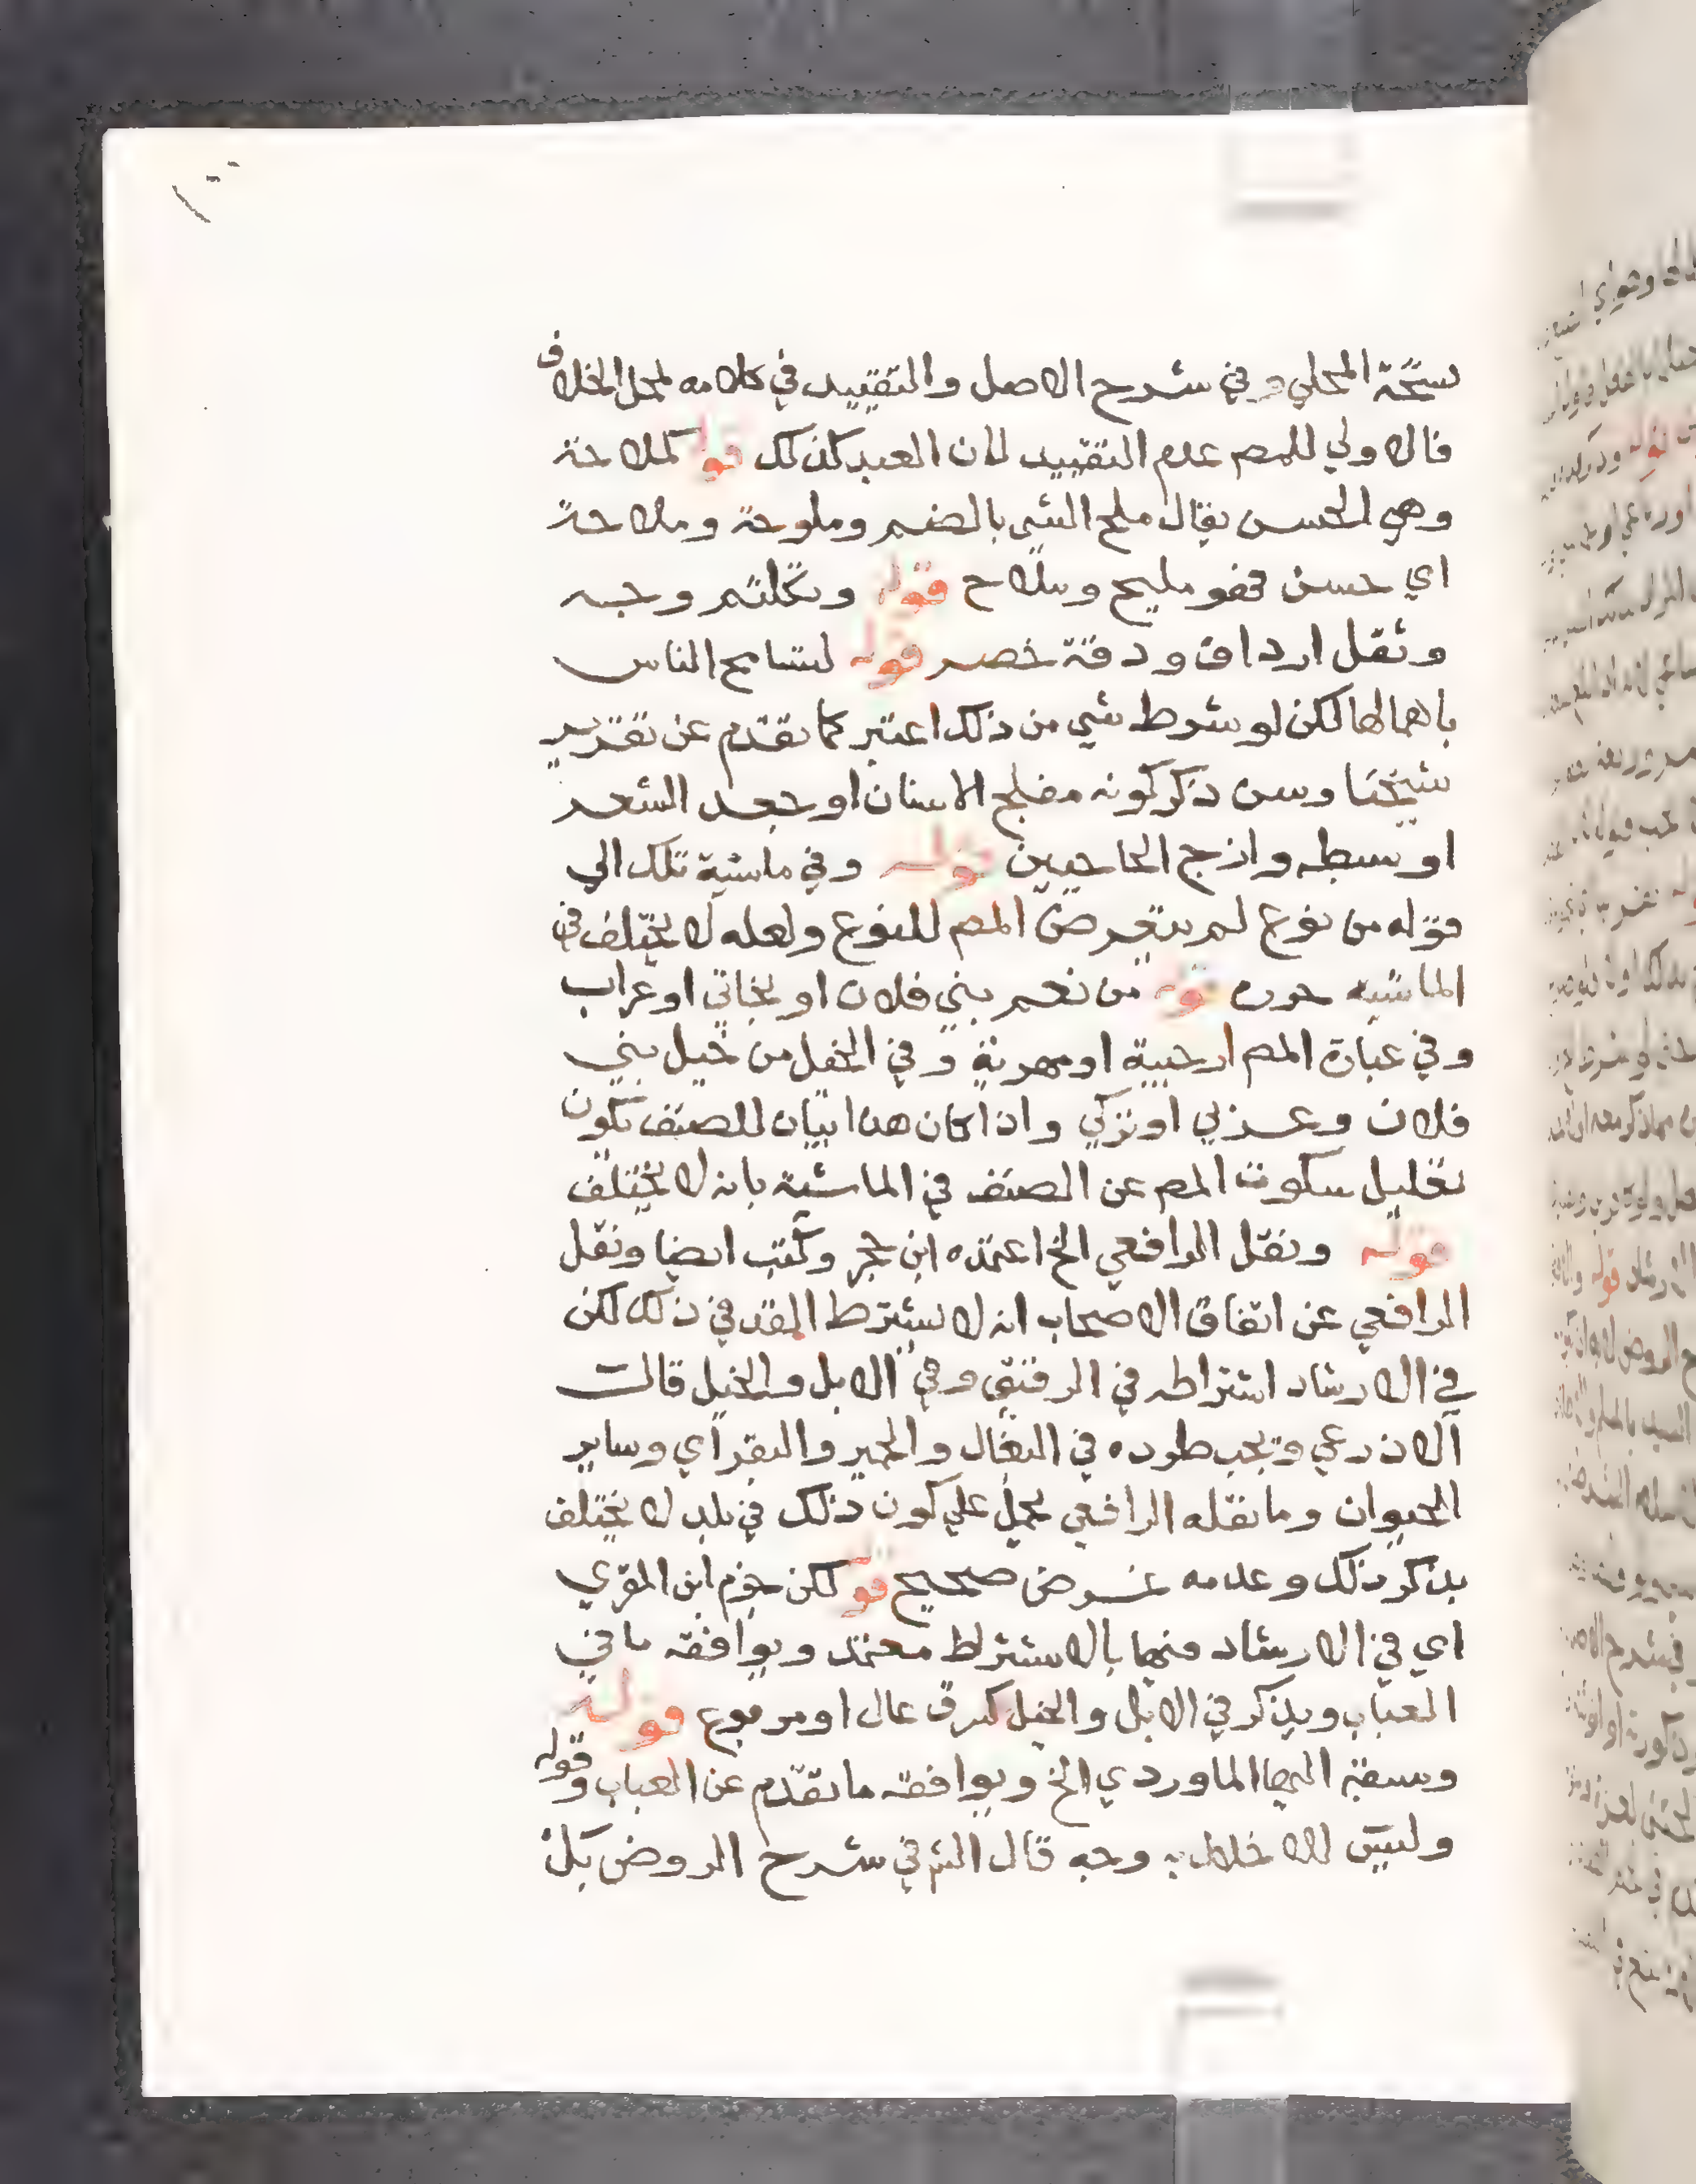 ١٠٠
نسخة المحلي وفي شرح الاصل والتقييد في كلامه لمحل الخلاف
فالاولي للمص عدم التقييد لان العبد كذلك قو كملاحة
وهي الحسن يقال ملح الشي بالضم وملوحة وملاحة
اي حسن فهو مليح وملاح قوله وتكلثم وجه
وثقل ارداف ودقة خصر قوله لتسامح الناس
باهمالها لكن لو شرط شي من ذلك اعتبر كما تقدم عن تقرير
شيخنا وسن ذكر كونه مفلج الاسنان او جعد الشعر
او سبطه وازج الحاجبين قوله وفي ماشية تلك الي
قوله من نوع لم يتعرض المص للنوع ولعله لا يختلف في
الماشية حرره قوله من نعم بني فلان او بخاتي او عراب
وفي عبارة المص ارحبية او مهرية وفي الخيل من خيل بني
فلان وعربي او تركي واذا كان هذا بيان للصنف تكون
تعليل سكوت المص عن الصنف في الماشية بانه لا يختلف
قوله ونقل الرافعي الخ اعتمده ابن حجر وكتب ايضا ونقل
الرافعي عن اتفاق الاصحاب انه لا يشترط القد في ذلك لكن
في الارشاد اشتراطه في الرقيق وفي الابل والخيل قالت
الاذرعي ويجب طرده في البغال والحمير والبقر اي وساير
الحيوان وما نقله الرافعي يحمل علي كون ذلك في بلد لا يختلف
بذكر ذلك وعدمه غرض صحيح قو لكن جزم ابن المقري
اي في الارشاد منها بالاشتراط معتمد ويوافقه ما في
العباب ويذكر في الابل والخيل كبرق عال او مربوع قوله
وسبقه اليها الماوردي الخ ويوافقه ما تقدم عن العباب وقوله
وليس للاخلال به وجه قال الش في شرح الروض بل